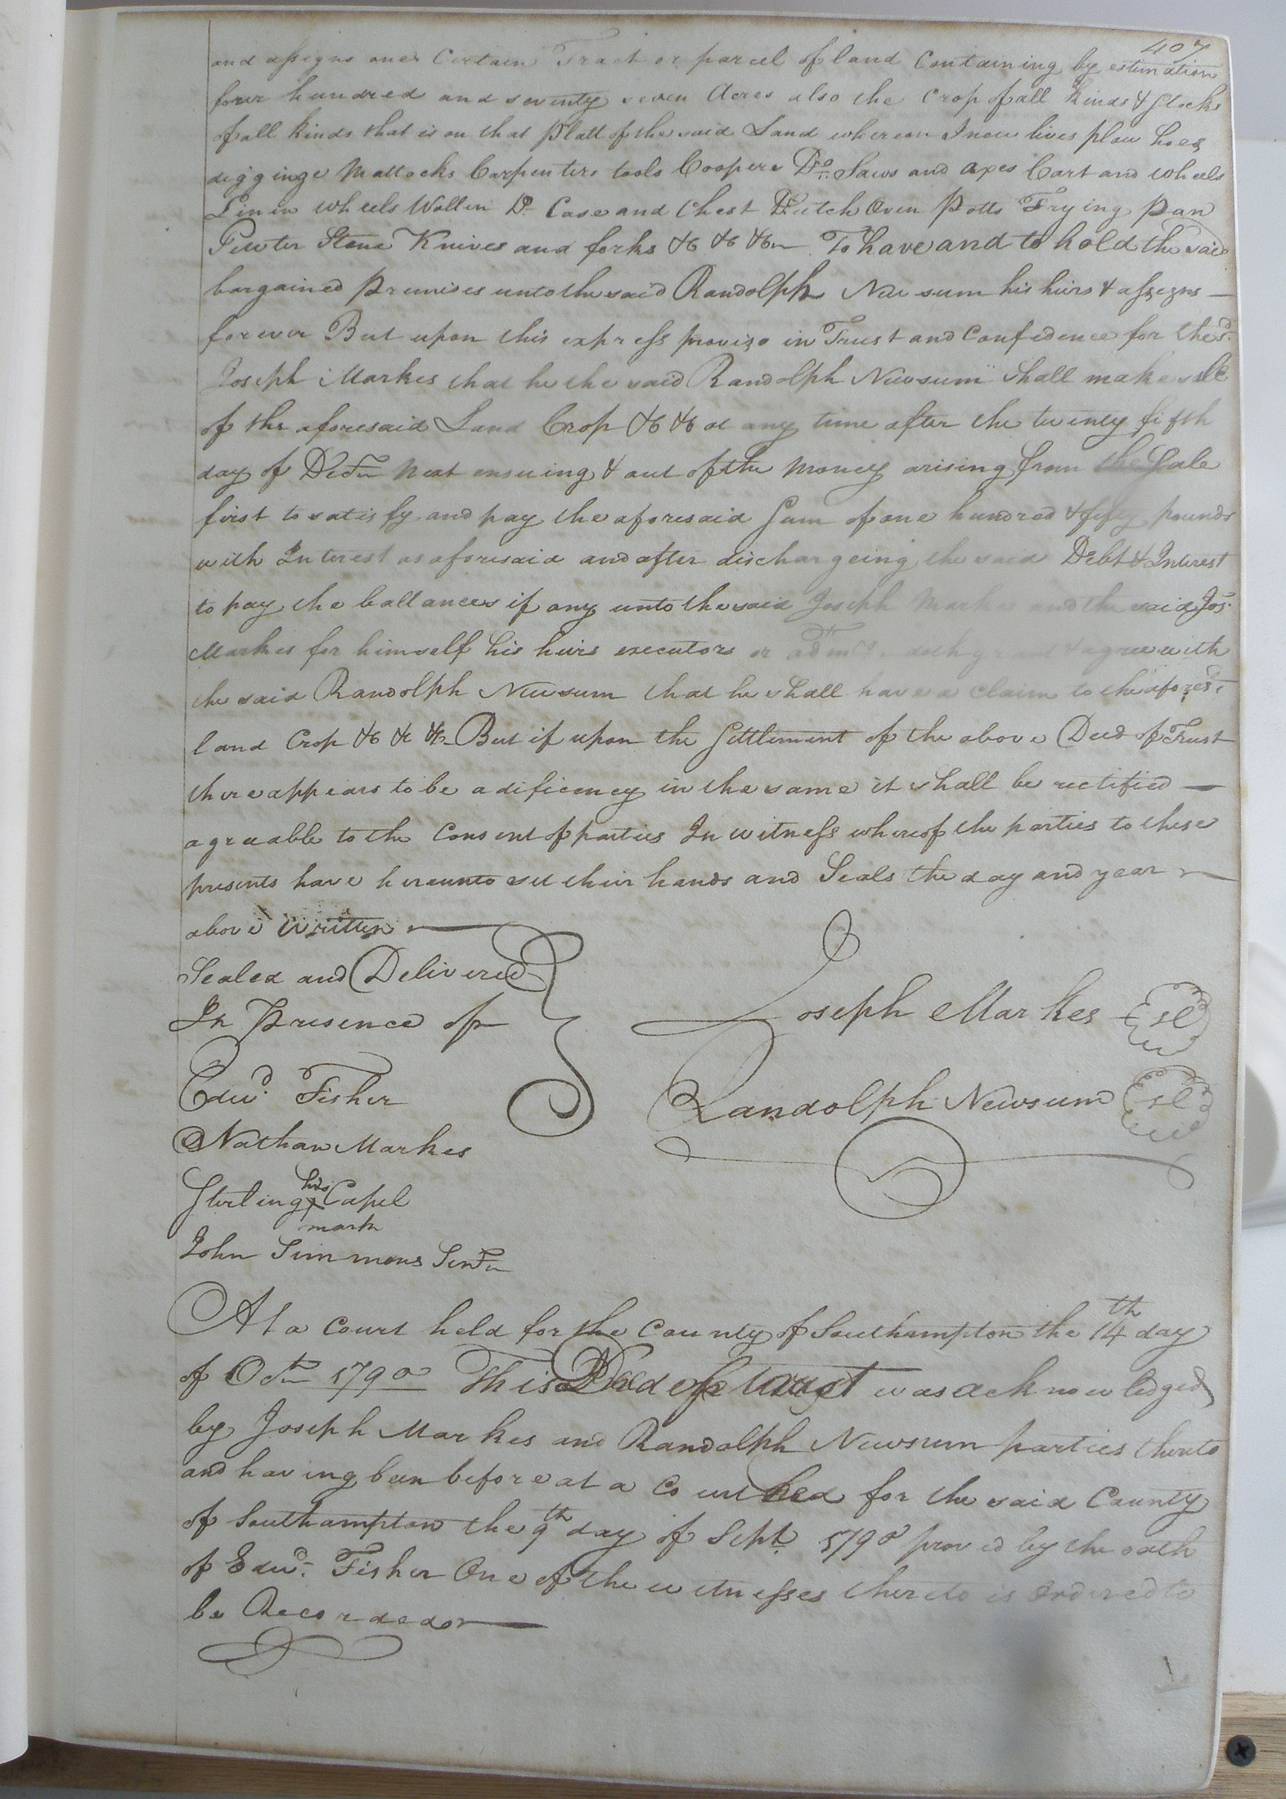 407
and assigns one Certain Tract or parcel of land Containing by estimation
four hundred and seventy seven Acres also the Crop of all kinds & Stocks
of all kinds that is on that Platt of the said Land whereon I now lives plow hoes
digginge Mattocks Carpenters tools Coopers Do. Saws and axes Cart and wheels
Linin wheels Wollin Do. Case and Chest Dutch Oven Potts Frying Pan
Pewter Stone Knives and forks &c &c &c To have and to hold the said
bargained Premises unto the said Randolph Newsum his heirs & assigns
forever But upon this express proviso in Trust and Confidence for the sd.
Joseph Markes that he the said Randolph Newsum Shall make sale
of the aforesaid Land Crop &c &c at any time after the twenty fifth
day of Decr. next ensuing & out of the Money arising from the Sale
first to satisfy and pay the aforesaid Sum of one hundred & fifty pounds
with Interest as aforesaid and after dischargeing the said Debt & Interest
to pay the ballances if any unto the said Joseph Markes and the said Jos.
Markes for himself his heirs executors or doth grant & agree with
the said Randolph Newsum that he shall have a Claim to the aforesd.
land Crop &c &c &c But if upon the Settlement of the above Deed of Trust
there appears to be a dificiency in the same it shall be rectified
agreeable to the Consent of parties In witness whereof the parties to these
presents have hereunto set their hands and Seals the day and year
above Written
Sealed and Delivered
In Presence of
Joseph Markes Sl
Edwd. Fisher
Randolph Newsum Sl
Nathan Markes
his
Sterling X Capel
mark
John Simmons Senr.
At a Court held for the County of Southampton the 14th day
of Octr. 1790 This Deed of Trust was acknowledged
by Joseph Markes and Randolph Newsum parties thereto
and having been before at a Court held for the said County
of Southampton the 9th day of Sept. 1790 proved by the oath
of Edwd. Fisher One of the witnesses thereto is Ordered to
be Recorded